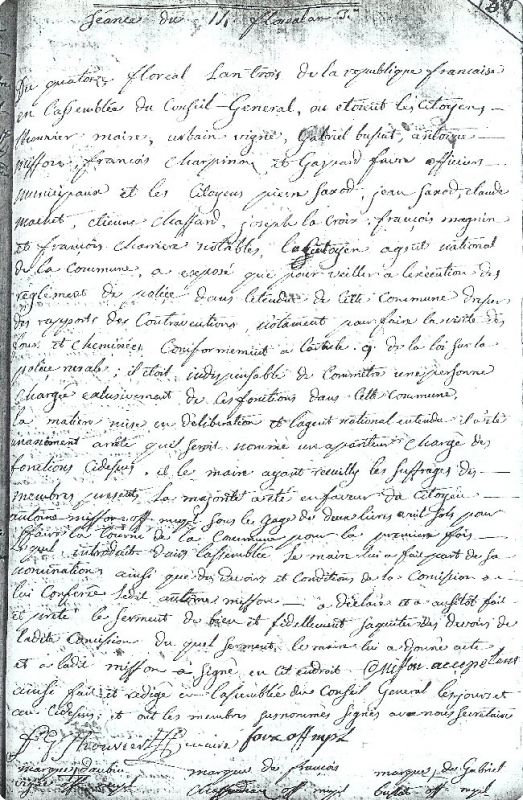 Séance du 14 floréal an 3e
Du quatorze floréal L'an trois de la république francaise
en l'assemblée du Conseil-General, ou etoient les Citoyens
Monnier maire, urbain vigne, Gabriel bussat, antoine
misson, francois Charpinne, et Gaspard favre officiers
municipaux et les Citoyens pierre Savod, jean Savod, claude
machet, etienne Chaffard, joseph la Croix, francois magnin
et francois Charriere notables, le Citoyen agent national
de la Commune, a exposé que pour veiller a l'execution des
règlement de police dans letendue de Cette Commune dresser
des rapports des Contraventions, notament pour faire la visite des
fours et Cheminées Conformement a l'article 9 de la loi sur la
police rurale; il etoit indispensable de Commettre une personne
Chargée exclusivement de ces fonctions dans Cette Commune,
la matiere mise en délibération et l'agent national entendu il a été
unanimement arrêté qu'il seroit nommé un apariteur Chargé des
fonctions Cidessus, et le maire ayant recueilly les suffrages des
membres presents, la majorité a été en faveur du Citoyen
antoine misson off mupl sous les gages de deux livres huit sols pour
faire la tourné de la Commune pour la premiere fois
lequel introduit dans l'assemblée le maire lui a fait part de sa
nomination ainsi que des devoirs et Conditions de la Comission a
lui Conferée ledit antoine misson a déclaré et a aussitôt fait
et preté le serment de bien et fidellement saquiter des devoirs de
ladite Comission du quel serment, le maire lui a donné acte
et a ledit misson a signé en cet endroit Misson acceptant
ainsi fait et redigé en l'assemblée du Conseil General les jours et
an Cidessus, et ont les membres susnommés signés avec nous secretaire
maire favre off mpl
marque d'urbin marque de francois marque de Gabriel
vigne off mpl off mpl bussat off mpl